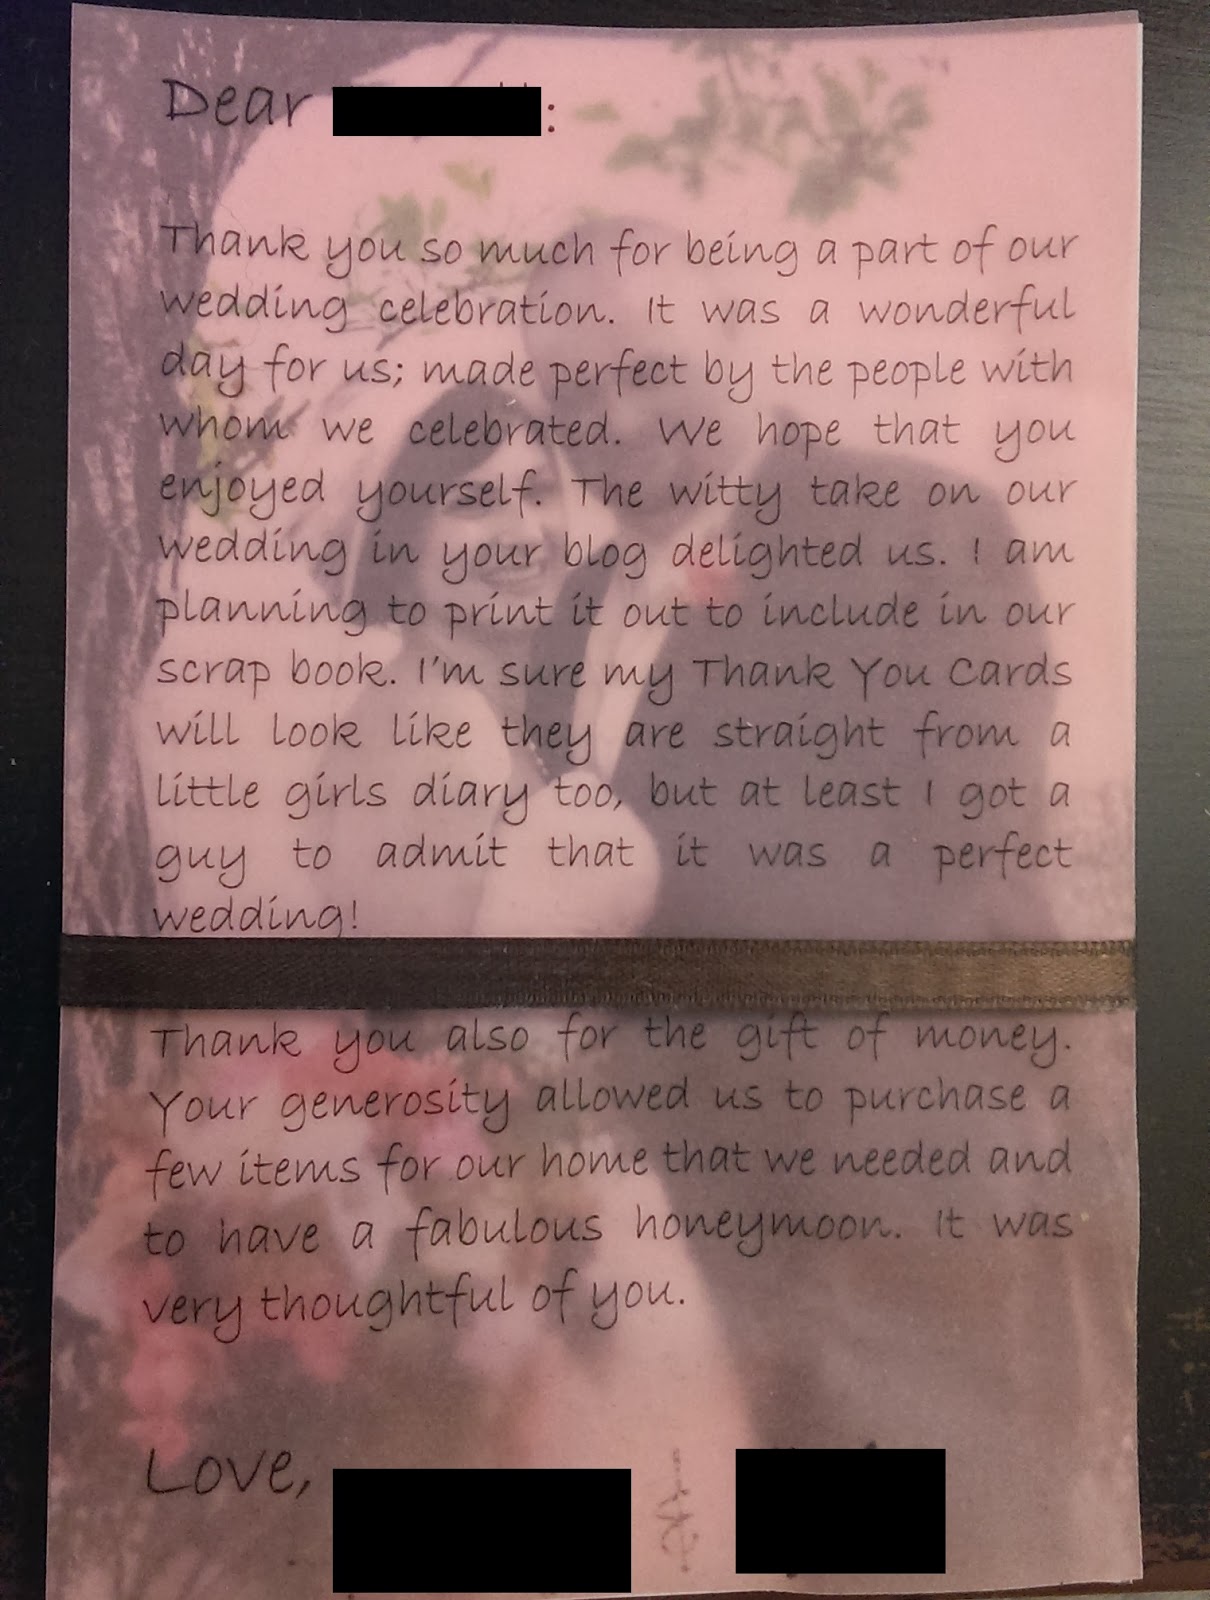 Dear :
Thank you so much for being a part of our
wedding celebration. It was a wonderful
day for us; made perfect by the people with
whom we celebrated. We hope that you
enjoyed yourself. The witty take on our
wedding in your blog delighted us. I am
planning to print it out to include in our
scrap book. I'm sure my Thank You Cards
will look like they are straight from a
little girls diary too, but at least I got a
guy to admit that it was a perfect
wedding!
Thank you also for the gift of money.
Your generosity allowed us to purchase a
few items for our home that we needed and
to have a fabulous honeymoon. It was
very thoughtful of you.
Love,